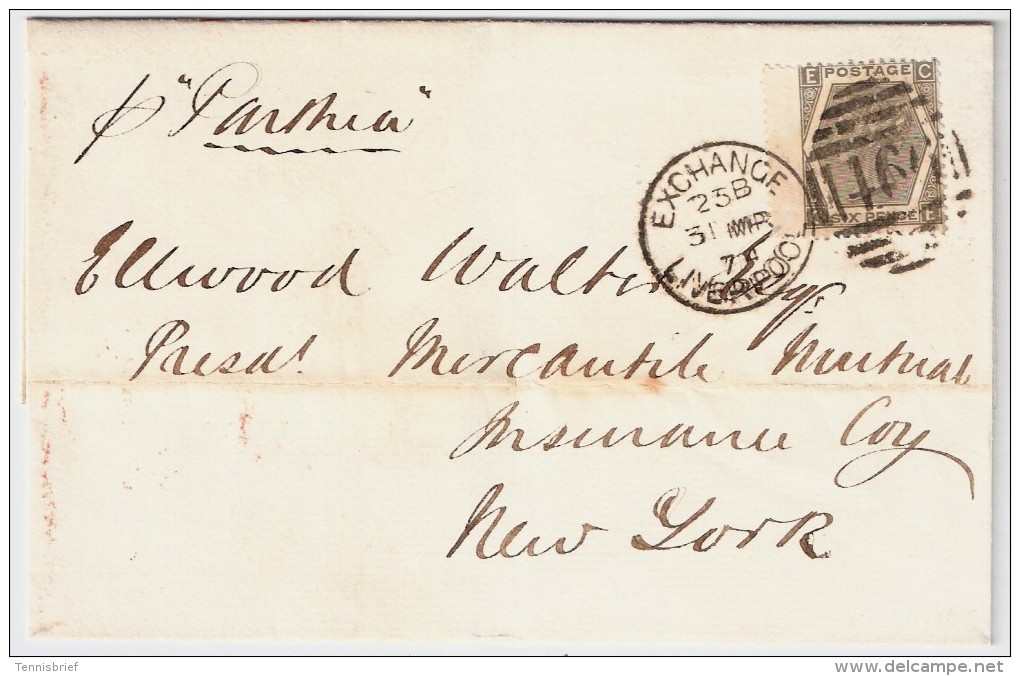 p "Parthia"
E POSTAGE C
SIX PENCE E
466
EXCHANGE
23B
31 MR
LIVERPOOL
Ellwood Walter Esqr.
Presdt. Mercantile Mutual
Insurance Coy
New York
Tennisbrief
delcampe.net